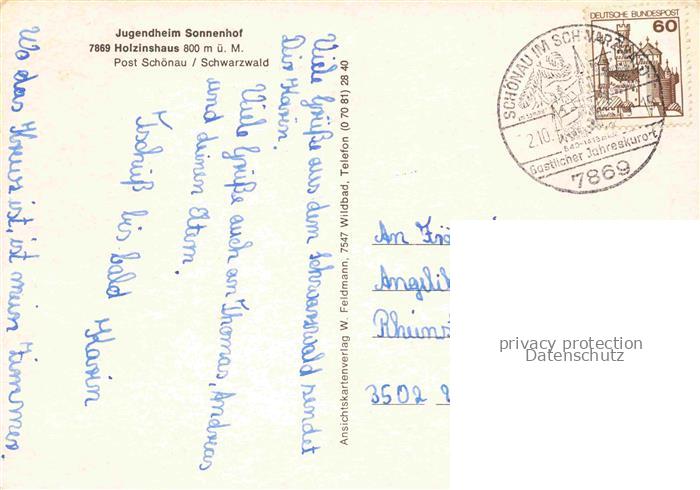 Jugendheim Sonnenhof
7869 Holzinshaus 800 m ü. M.
Post Schönau / Schwarzwald
Viele Grüße aus dem Schwarzwald sendet
Dir Karin.
Viele Grüße auch an Thomas, Andreas
und deinen Eltern.
Tschüß bis bald
Karin
Wo das Kreuz ist, ist mein Zimmer.
Ansichtskartenverlag W. Feldmann, 7547 Wildbad, Telefon (0 70 81) 28 40
DEUTSCHE BUNDESPOST
60
SCHÖNAU IM SCHWARZW
2.10.
Gastlicher Jahreskurort
7869
An
Angelik
Rheins
3502
privacy protection
Datenschutz